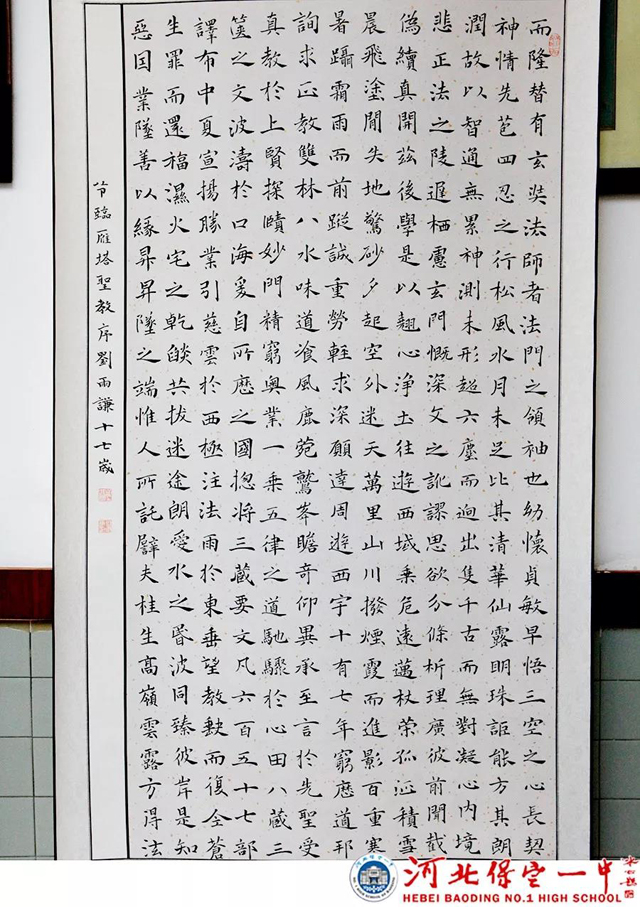 而隆替有玄奘法師者法門之領袖也幼懷貞敏早悟三空之心長契
神情先苞四忍之行松風水月未足比其清華仙露明珠詎能方其朗
潤故以智通無累神測未形超六塵而迥出隻千古而無對凝心內境
悲正法之陵遲栖慮玄門慨深文之訛謬思欲分條析理廣彼前聞截
偽續真開茲後學是以翹心淨土往遊西域乘危遠邁杖策孤征積雪
晨飛塗間失地驚砂夕起空外迷天萬里山川撥煙霞而進影百重寒
暑躡霜雨而前蹤誠重勞輕求深願達周遊西宇十有七年窮歷道邦
詢求正教雙林八水味道飡風鹿菀鷲峯瞻奇仰異承至言於先聖受
真教於上賢探賾妙門精窮奧業一乘五律之道馳驟於心田八藏三
篋之文波濤於口海爰自所歷之國揔將三藏要文凡六百五十七部
譯布中夏宣揚勝業引慈雲於西極注法雨於東垂聖教缺而復全蒼
生罪而還福濕火宅之乾燄共拔迷途朗愛水之昏波同臻彼岸是知
惡因業墜善以緣昇昇墜之端惟人所託譬夫桂生高嶺雲露方得法
節臨雁塔聖教序劉雨謙十七歲
河北保定一中
HEBEI BAODING NO.1 HIGH SCHOOL